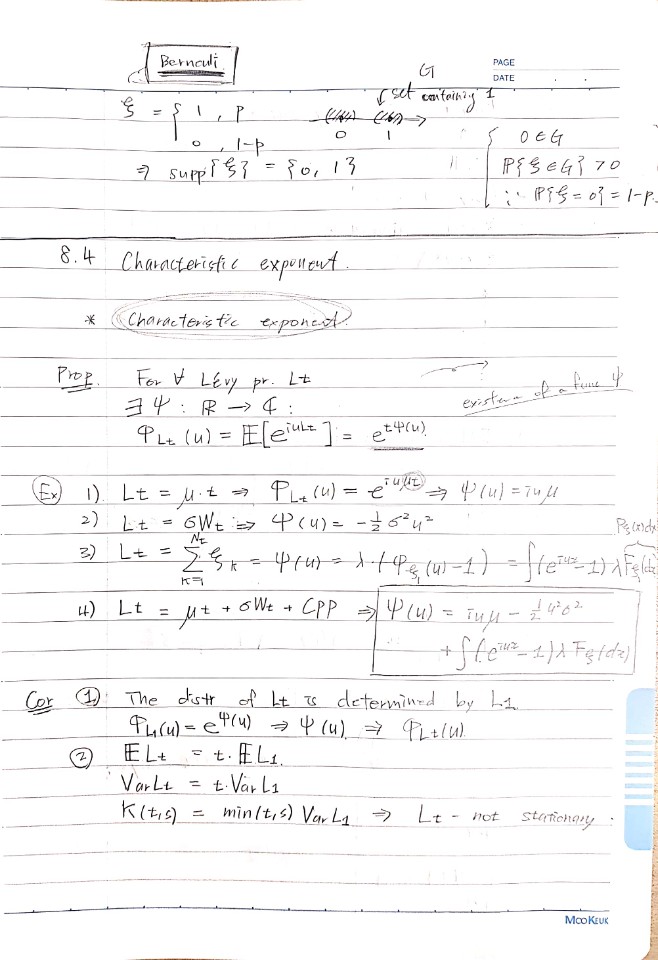 Bernouli
PAGE
DATE
G
set containing 1
ξ = { 1 , p
0 , 1-p
0 1
⇒ supp{ξ} = {0, 1}
{ 0 ∈ G
ℙ{ξ ∈ G} > 0
∵ ℙ{ξ = 0} = 1-p.
8.4 Characteristic exponent.
* Characteristic exponent.
Prop. For ∀ Lévy pr. Lt
∃ Ψ : ℝ → ℂ :
existence of a func Ψ
φ_Lt (u) = 𝔼[e^{iuLt}] = e^{tψ(u)}.
Ex 1) Lt = μ·t ⇒ φ_Lt(u) = e^{iuμt} ⇒ ψ(u) = iuμ
2) Lt = σWt ⇒ Ψ(u) = -½ σ²u²
P_ξ(x)dx
3) Lt = Σ_{k=1}^{Nt} ξ_k = ψ(u) = λ·(φ_ξ1(u) - 1) = ∫(e^{iux} - 1) λ F_ξ(dx)
4) Lt = μt + σWt + CPP ⇒ Ψ(u) = iuμ - ½ u²σ²
+ ∫(e^{iux} - 1) λ F_ξ(dx)
Cor ① The distr of Lt is determined by L1.
φ_L1(u) = e^{ψ(u)} ⇒ ψ(u) ⇒ φ_Lt(u).
② 𝔼Lt = t·𝔼L1.
Var Lt = t·Var L1
K(t,s) = min(t,s) Var L1 ⇒ Lt - not stationary.
MOOKEUK